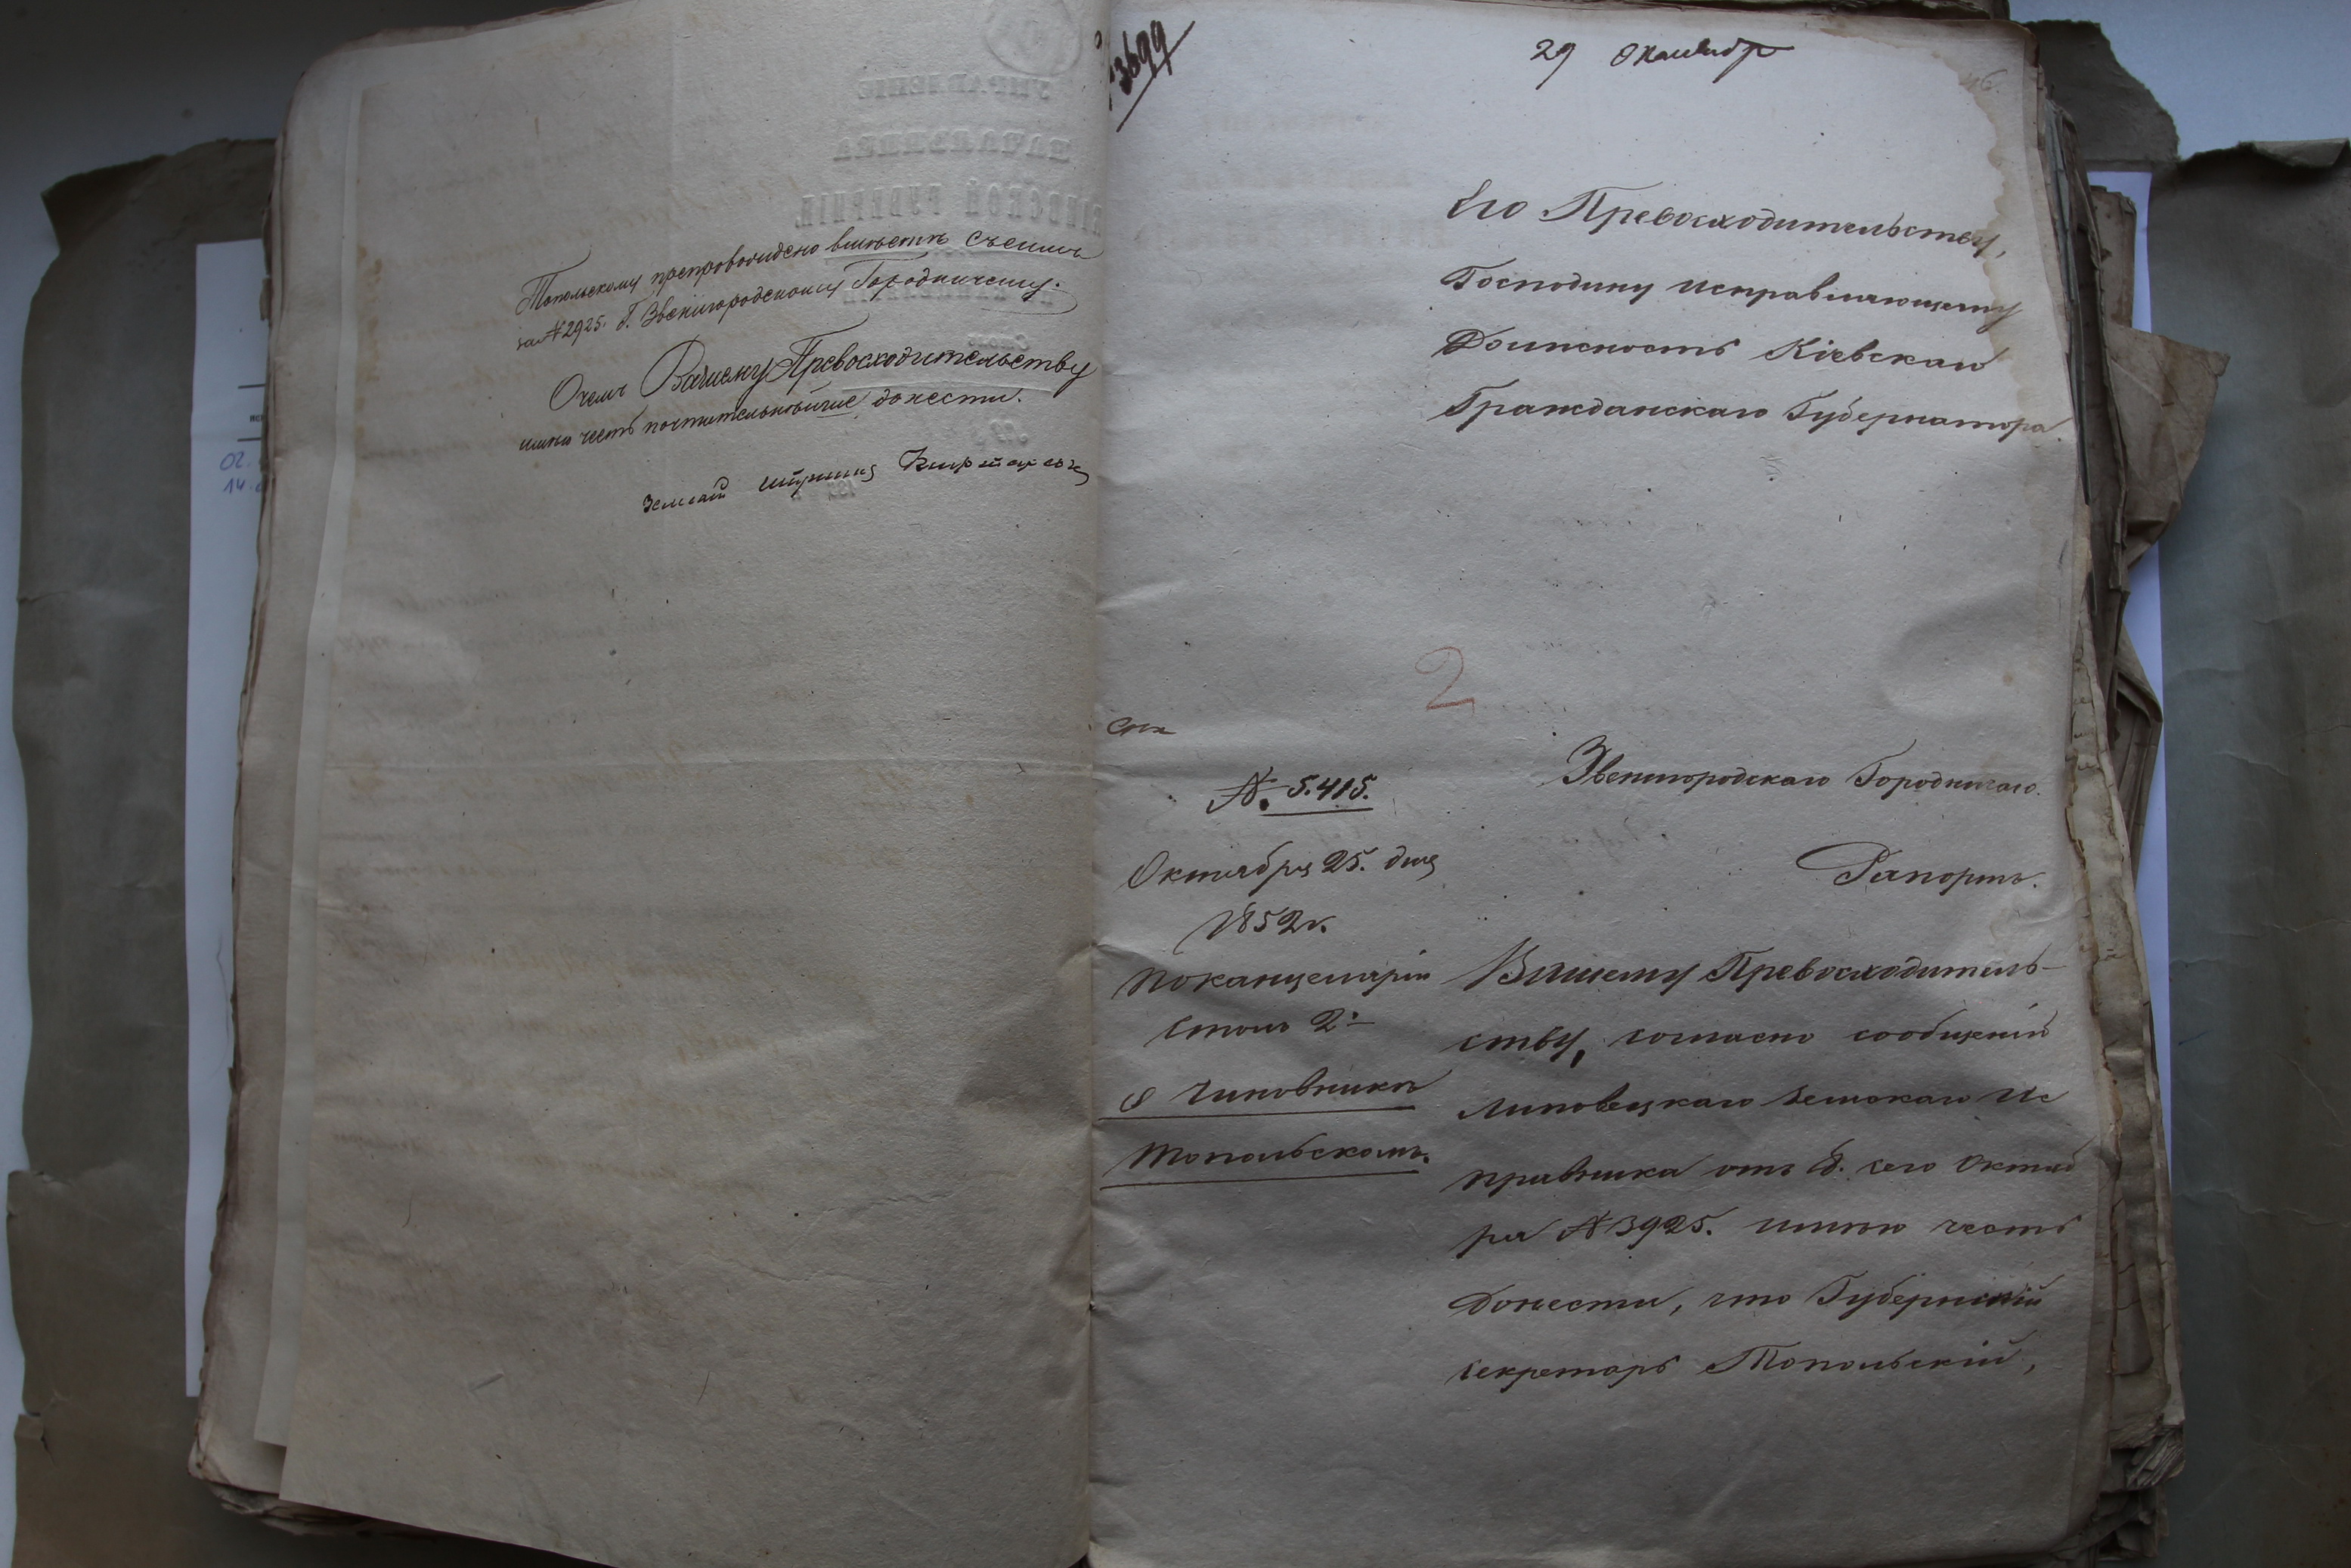 Топольскому препровождено вместе съ симъ
за № 2925. Г. Звенигородскому Городничему.
О чемъ Вашему Превосходительству
имею честь почтительнейше донести.
3699
29 Октября
46.
Его Превосходительству,
Господину исправляющему
Должность Кіевскаго
Гражданскаго Губернатора.
2
Звенигородскаго Городничаго.
Рапортъ.
№. 5.415.
Октября 25. дня
1852 г.
По канцеляріи
столъ 2й
О чиновнике
Топольскомъ.
Вашему Превосходитель-
ству, согласно сообщенія
Липовецкаго Земскаго Ис
правника отъ 8. сего Октяб
ря № 3925. имею честь
донести, что Губернскій
Секретарь Топольскій,